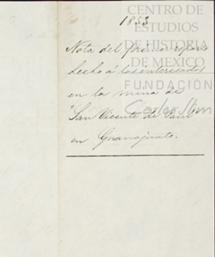 1853
Nota del
hecho á los interesados
en la mina de
"San Vicente de Paul"
en Guanajuato.
CENTRO DE
ESTUDIOS
DE HISTORIA
DE MEXICO
FUNDACIÓN
Carlos Slim